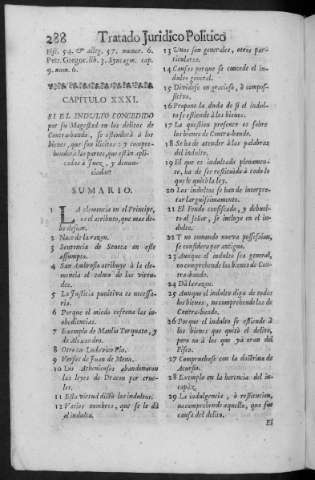 288 Tratado Juridico Politico
Fisc. 54. & alleg. 57. numer. 6.
Petr. Gregor. lib. 3. Syntagm. cap.
9. num. 6.
CAPITULO XXXI.
SI EL INDULTO CONCEDIDO
por su Magestad en los delitos de
Contrabando, se estenderà à los
bienes, que son ilicitos: y compre-
henderà las partes, que están apli-
cadas à Juez, y denun-
ciador?
SUMARIO.
1 LA clemencia en el Principe,
es el atributo, que mas de-
be desear.
2 Nace de la razon.
3 Sentencia de Seneca en este
assumpto.
4 San Ambrosio atribuye à la cle-
mencia el colmo de las virtu-
des.
5 La Justicia punitiva es necessa-
ria.
6 Porque el miedo refrena las in-
obediencias.
7 Exemplo de Manlio Torquato, y
de Alexandro.
8 Otro de Ludovico Pio.
9 Versos de Juan de Mena.
10 Los Athenienses abandonaron
las leyes de Dracon por crue-
les.
11 Esta virtud diò los indultos.
12 Varios nombres, que se le dà
al indulto.
13 Unos son generales, otros par-
ticulares.
14 Causas porque se concede el in-
dulto general.
15 Dividese en gracioso, ò compos-
sitivo.
16 Propone la duda de si el indul-
to se estiende à los bienes.
17 La question presente es sobre
los bienes de Contra-bando.
18 Se ha de atender à las palabras
del indulto.
19 El que es indultado plenamen-
te, ha de ser restituido à todo lo
que le quitò la ley.
20 Los indultos se han de interpre-
tar larguissimamente.
21 El Fondo confiscado, y debuel-
to al señor, se incluye en el in-
dulto.
22 Y no tomando nueva possession,
se considera por antigua.
23 Aunque el indulto sea general,
no comprehende los bienes de Con-
tra-bando.
24 Dà la razon.
25 Aunque el indulto diga de todos
los bienes, no comprehende los de
Contra-bando.
26 Porque el indulto se estiende à
los bienes que quitò el delito,
pero no à los que ya eran del
Fisco.
27 Compruebase con la doctrina de
Acursio.
28 Exemplo en la herencia del in-
capàz.
29 La indulgencia, ò restitucion,
no comprehende aquello, que fue
causa del delito.
El